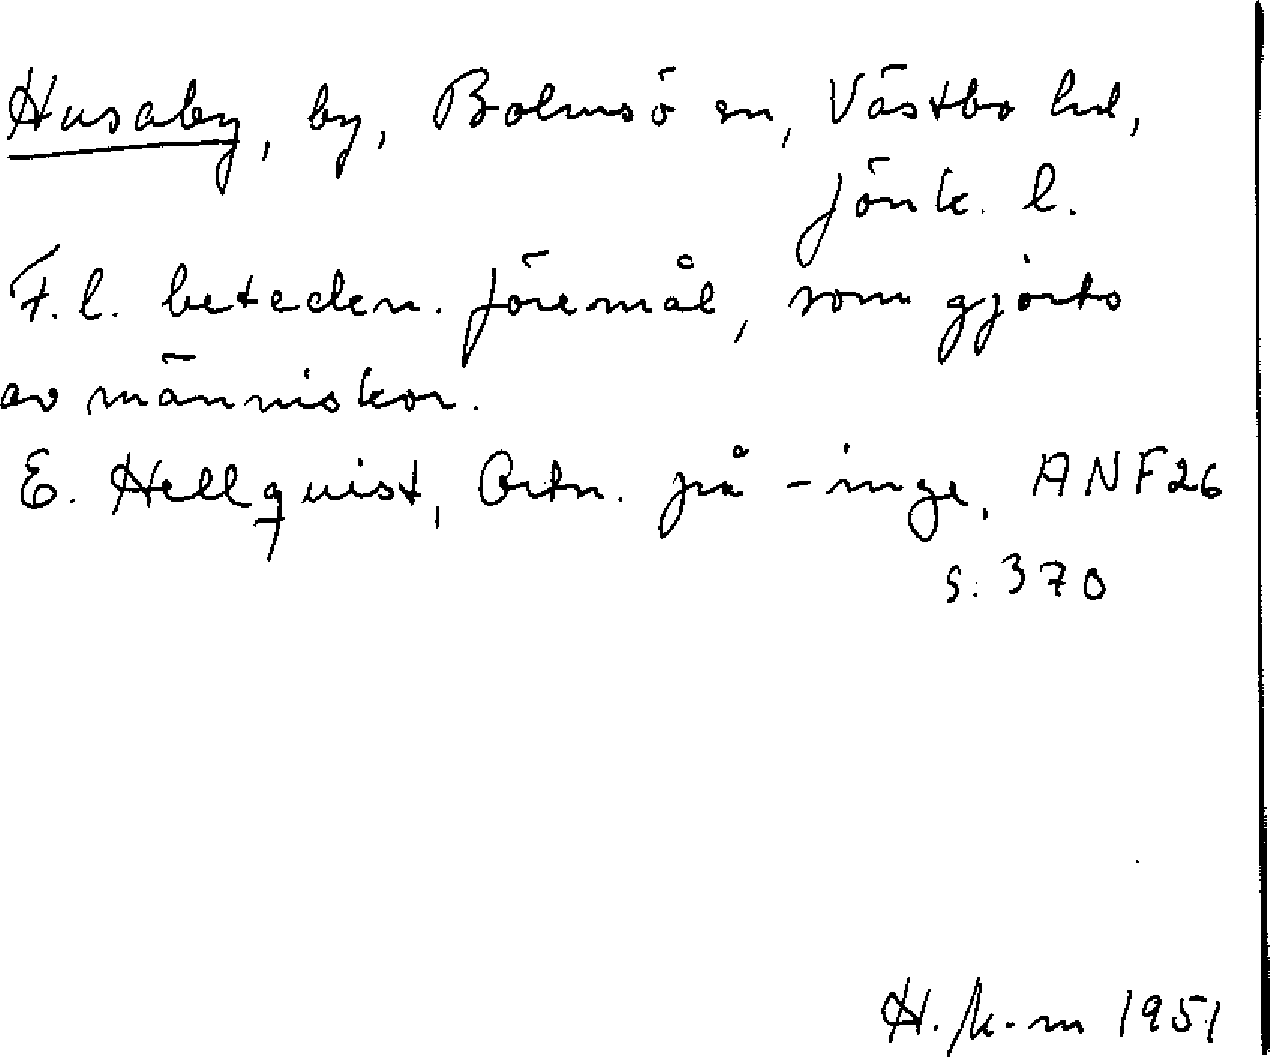 Husaby, by, Bolmsö sn, Västbo hd,
Jönk. l.
F.l. beteckn. föremål, som gjorts
av människor.
E. Hellquist, Ortn. på -inge, ANF 26
s. 370
H. 1951